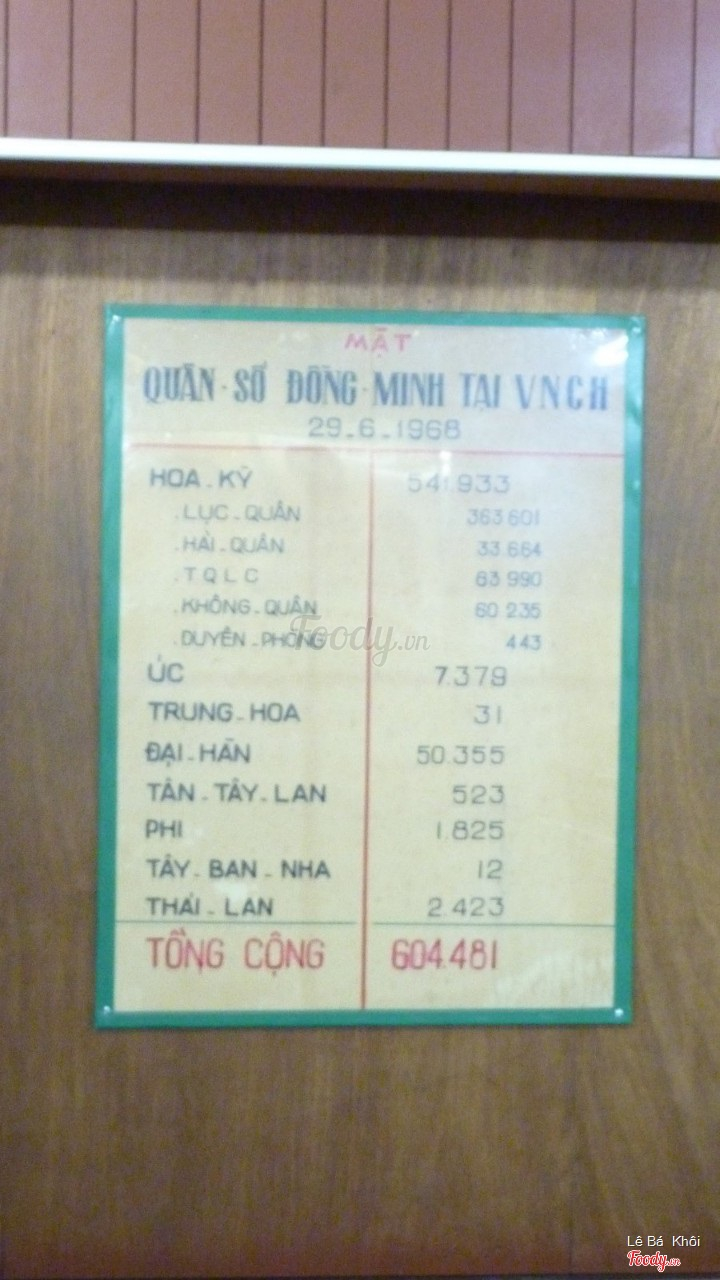 MẬT
QUÂN-SỐ ĐỒNG-MINH TẠI VNCH
29-6-1968
HOA-KỲ 541.933
.LỤC-QUÂN 363 601
.HẢI-QUÂN 33.664
.TQLC 83 990
.KHÔNG-QUÂN 60 235
.DUYÊN-PHÒNG 443
ÚC 7.379
TRUNG-HOA 31
ĐẠI-HÀN 50.355
TÂN-TÂY-LAN 523
PHI 1.825
TÂY-BAN-NHA 12
THÁI-LAN 2.423
TỔNG CỘNG 604.481
Foody.vn
Lê Bá Khôi
Foody.vn